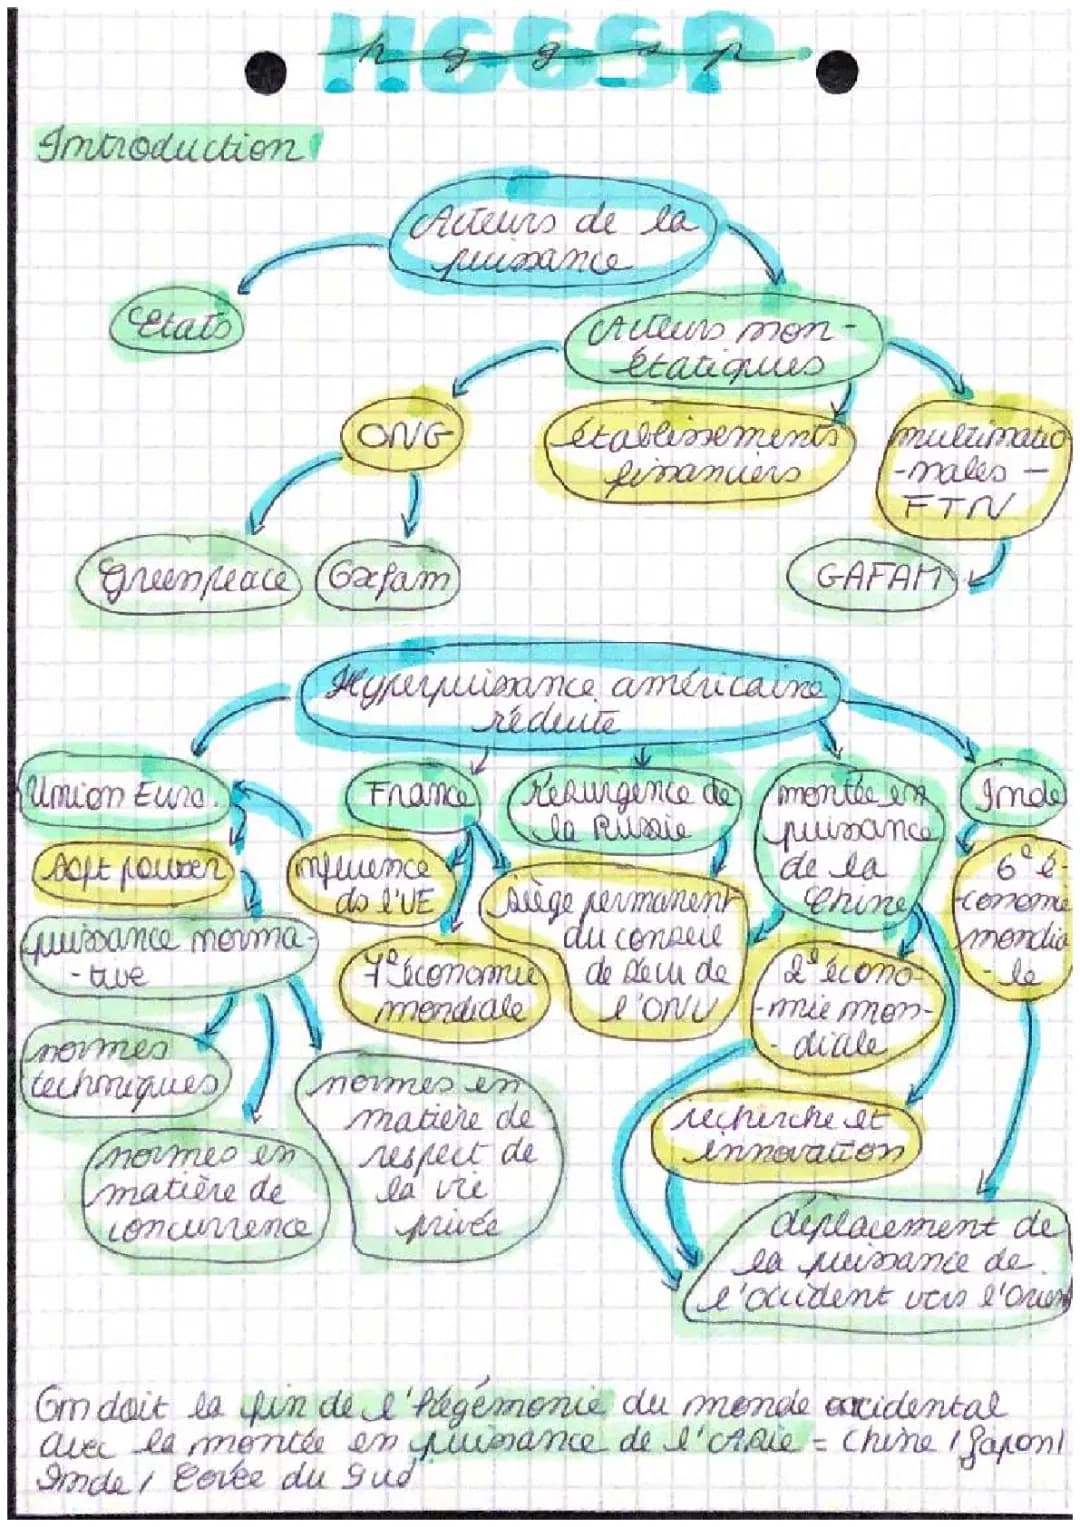 HGGSP
hggsp
Introduction
Acteurs de la
puissance
Etats
Acteurs non-
étatiques
ONG
établissements
financiers
multinatio
-nales -
FTN
Greenpeace
Oxfam
GAFAM
Hyperpuissance américaine
réduite
Union Euro.
France
Résurgence de
la Russie
montée en
puissance
de la
Chine
Inde
soft power
influence
ds l'UE
siège permanent
du conseil
de sécu de
l'ONU
6e é-
-conomie
mondia
-le
puissance norma-
-tive
7e économie
mondiale
2e écono-
-mie mon-
-diale
normes
techniques
normes en
matière de
respect de
la vie
privée
recherche et
innovation
normes en
matière de
concurrence
déplacement de
la puissance de
l'occident vers l'Orient
On doit la fin de l'hégémonie du monde occidental
avec la montée en puissance de l'Asie = Chine / Japon /
Inde / Corée du Sud